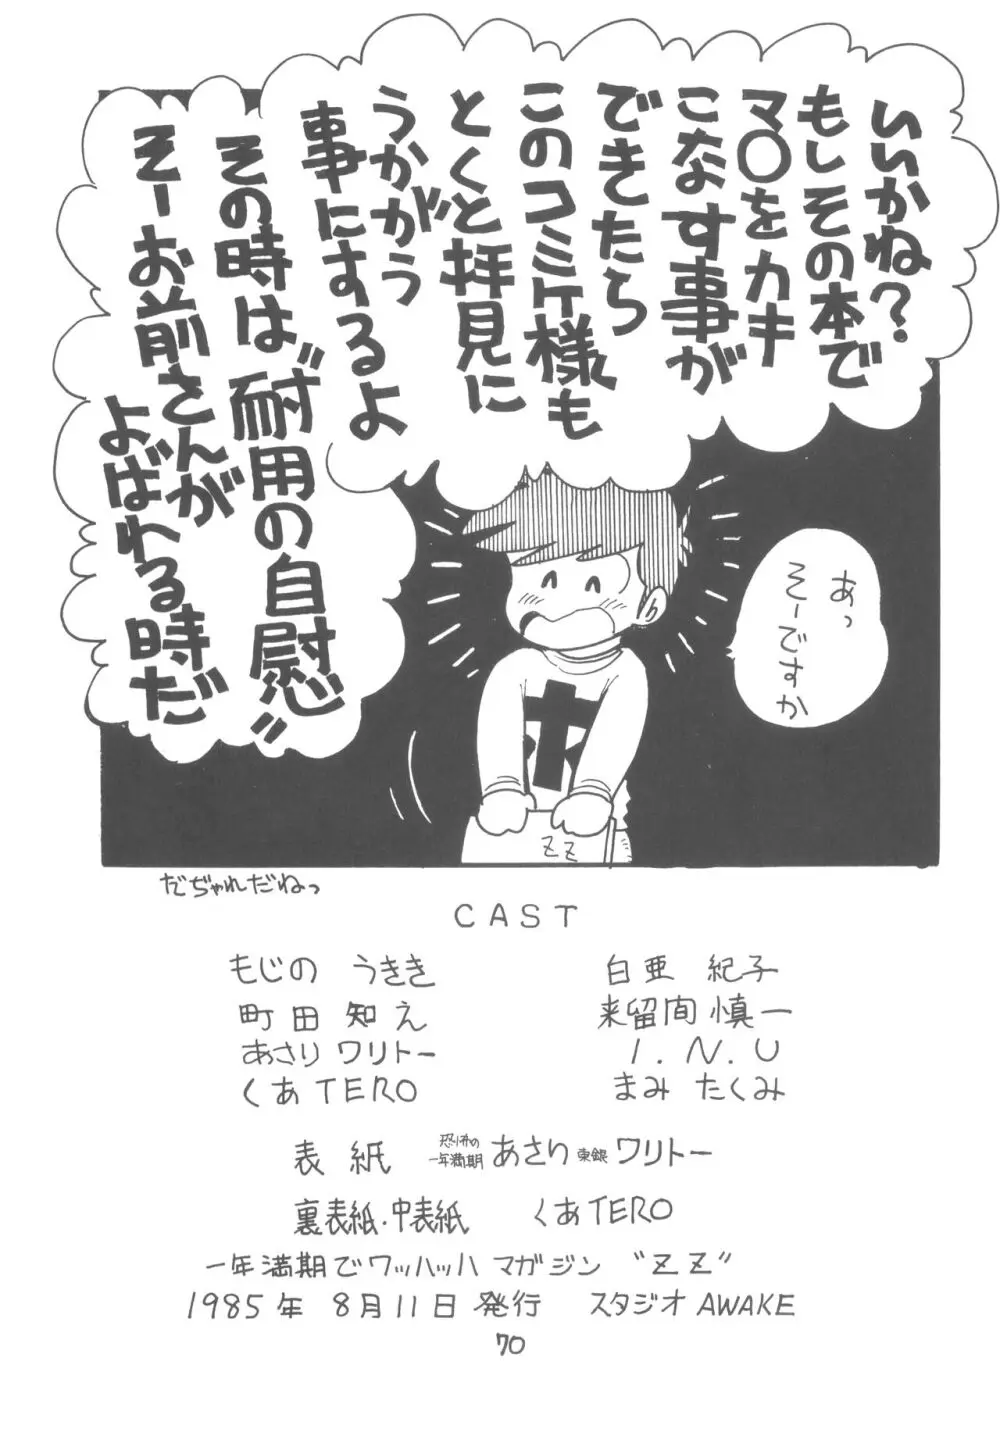 いいかね?
もしその本で
マ〇をカキ
こなす事が
できたら
このコミケ様も
とくと拝見に
うかがう
事にするよ
その時は“耐用の自慰”
そーお前さんが
よばわる時だ
あっ
そーですか
ZZ
だぢゃれだねっ
CAST
もじの うきき 白亜 紀子
町田 知え 来留間 慎一
あさり ワリトー I.N.U
くあTERO まみ たくみ
表紙 恐怖の一年満期 あさり 東銀 ワリトー
裏表紙・中表紙 くあTERO
一年満期でワッハッハ マガジン “ZZ”
1985年 8月11日 発行 スタジオ AWAKE
70